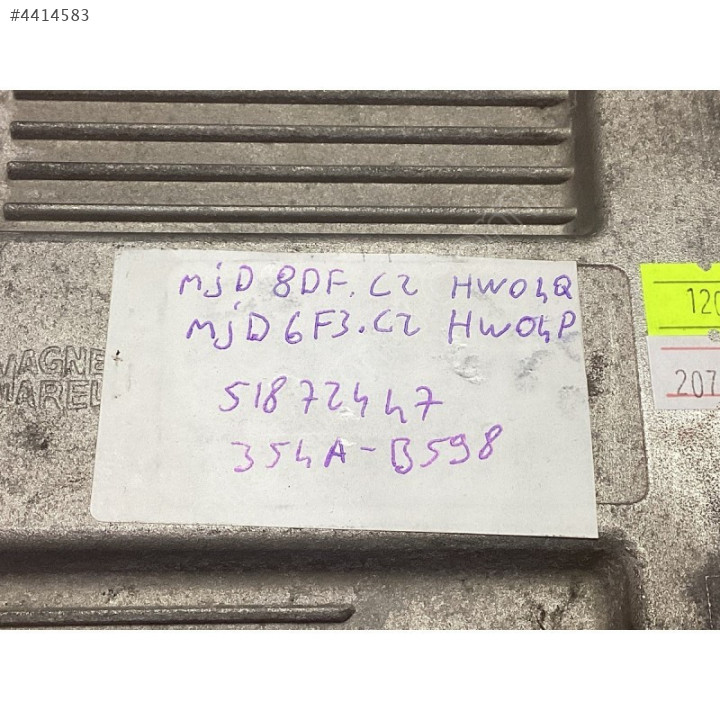 #4414583
MjD 8DF.C2 HW04Q
MjD 6F3.C2 HW04P
51872447
354A-B598
MAGNE
MAREL
120
207